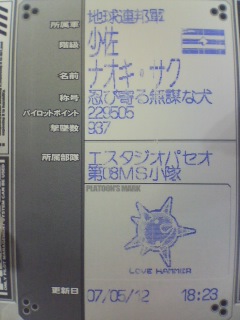 所属軍 地球連邦軍
階級 少佐
名前 ナオキ・サク
称号 忍び寄る無謀な犬
パイロットポイント 229505
撃墜数 937
所属部隊 エスタジオパセオ
第08MS小隊
PLATOON'S MARK
LOVE HAMMER
更新日 07/05/12 18:23